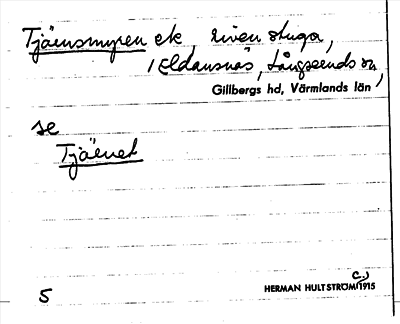 Tjäensmyren ek, riven stuga,
1 Eldansnäs, Långseruds sn,
Gillbergs hd, Värmlands län
se
Tjäenet
c.)
HERMAN HULTSTRÖM 1915
5